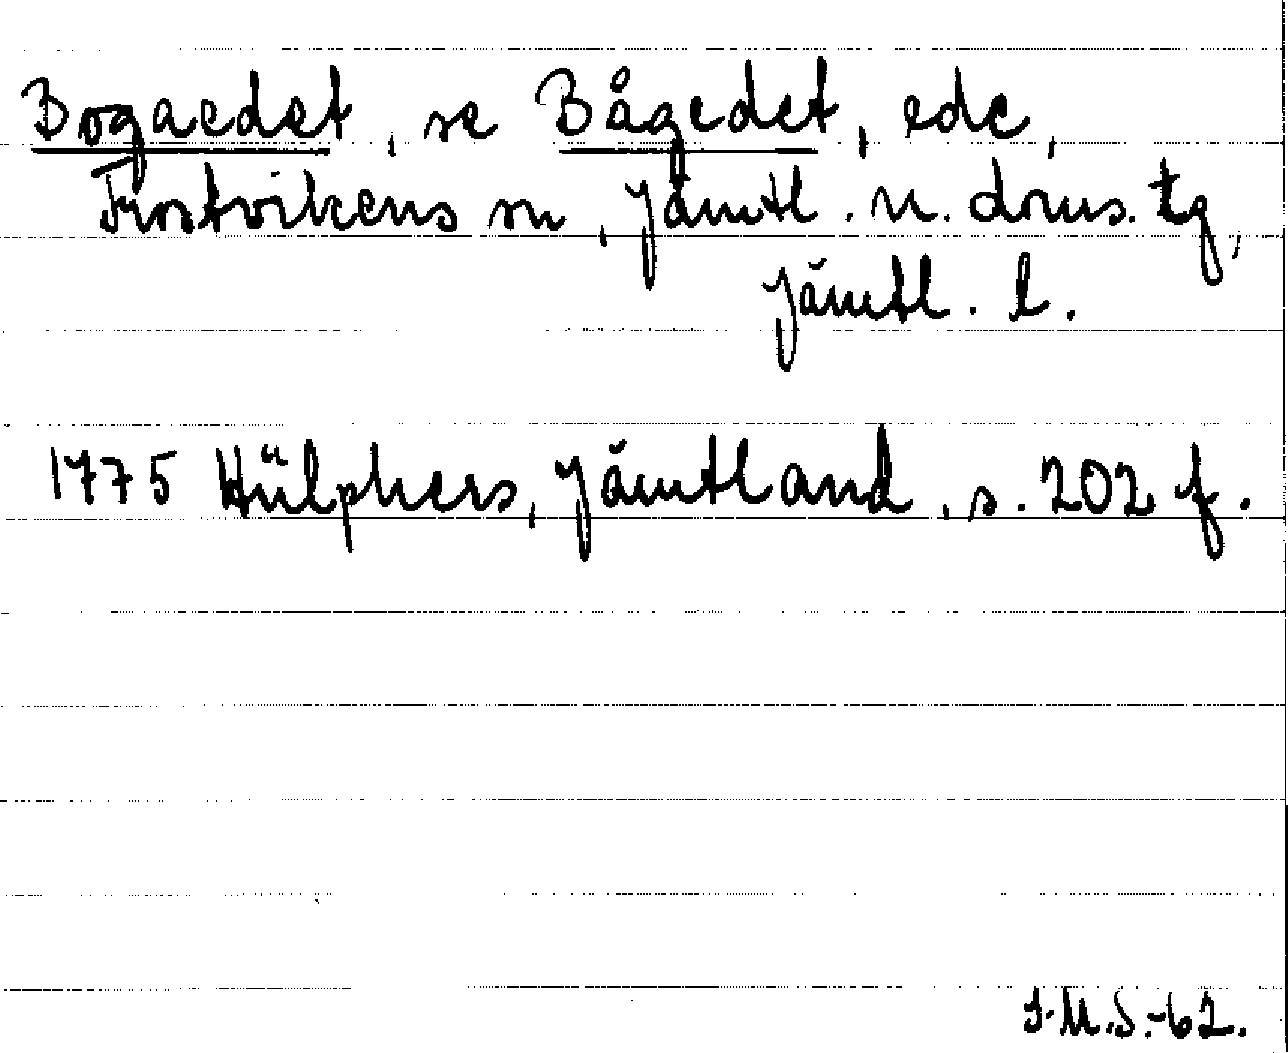 Bogaedet, se Bågedet, ede,
Frostvikens sn, Jämtl. n. doms. tg,
Jämtl. l.
1775 Hülphers, Jämtland, s. 202 f.
I.M.S.-62.